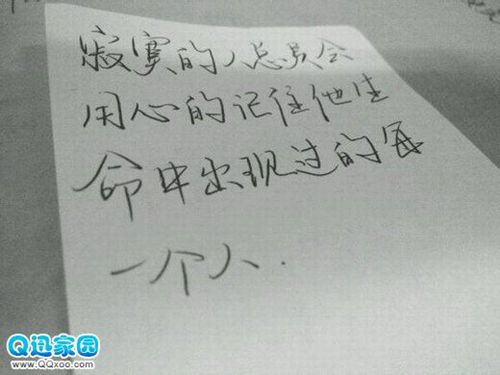 寂寞的人总是会
用心的记住他生
命中出现过的每
一个人.
Q迅家园
www.QQxoo.com